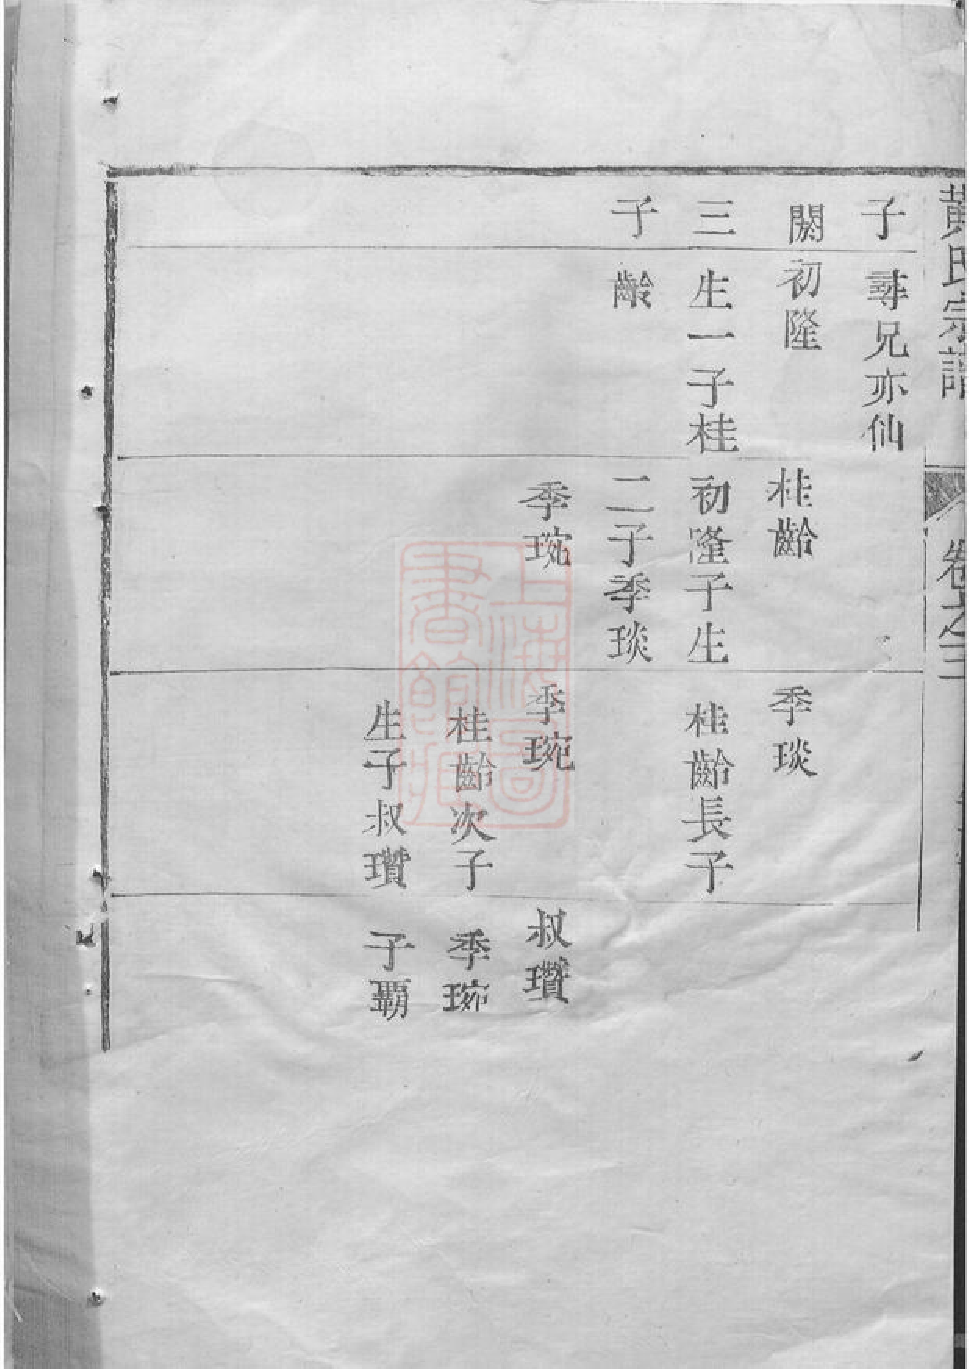 黄氏宗譜
卷之三
子
閎
三
子
尋兄亦仙
初隆
生一子桂
齡
桂齡
初隆子生
二子季琰
季琬
季琰
桂齡長子
季琬
桂齡次子
生子叔瓚
叔瓚
季琬
子覇
上海圖書館藏